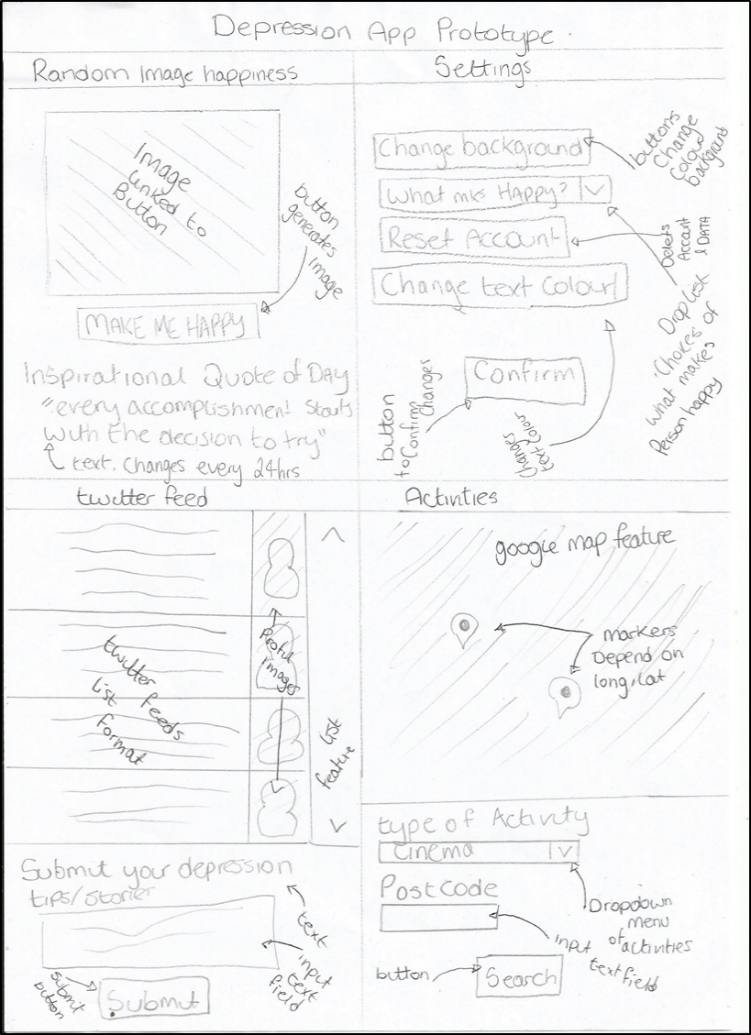 Depression App Prototype.
Random Image happiness
Image
linked to
Button
button
generates
image
MAKE ME HAPPY
Inspirational Quote of DAY
"every accomplishment Starts
with the decision to try"
text. Changes every 24hrs
Settings
Change background
buttons
Change
Colour
background
What mks HAPPY?
Reset Account
Delets
Account
& DATA
Change text Colour
Drop list
'Choices of
what makes
Person happy
Confirm
button
to Confirm
changes
Changes
text colour
twitter feed
twitter feeds
list
format
Profil
images
list
feature
Submit your depression
tips/stories
text
input
text
field
submit
button
Submit
Activities
google map feature
markers
Depend on
long, Lat
type of Activity
Cinema
Postcode
Dropdown
menu
of
activities
input
text field
button
Search